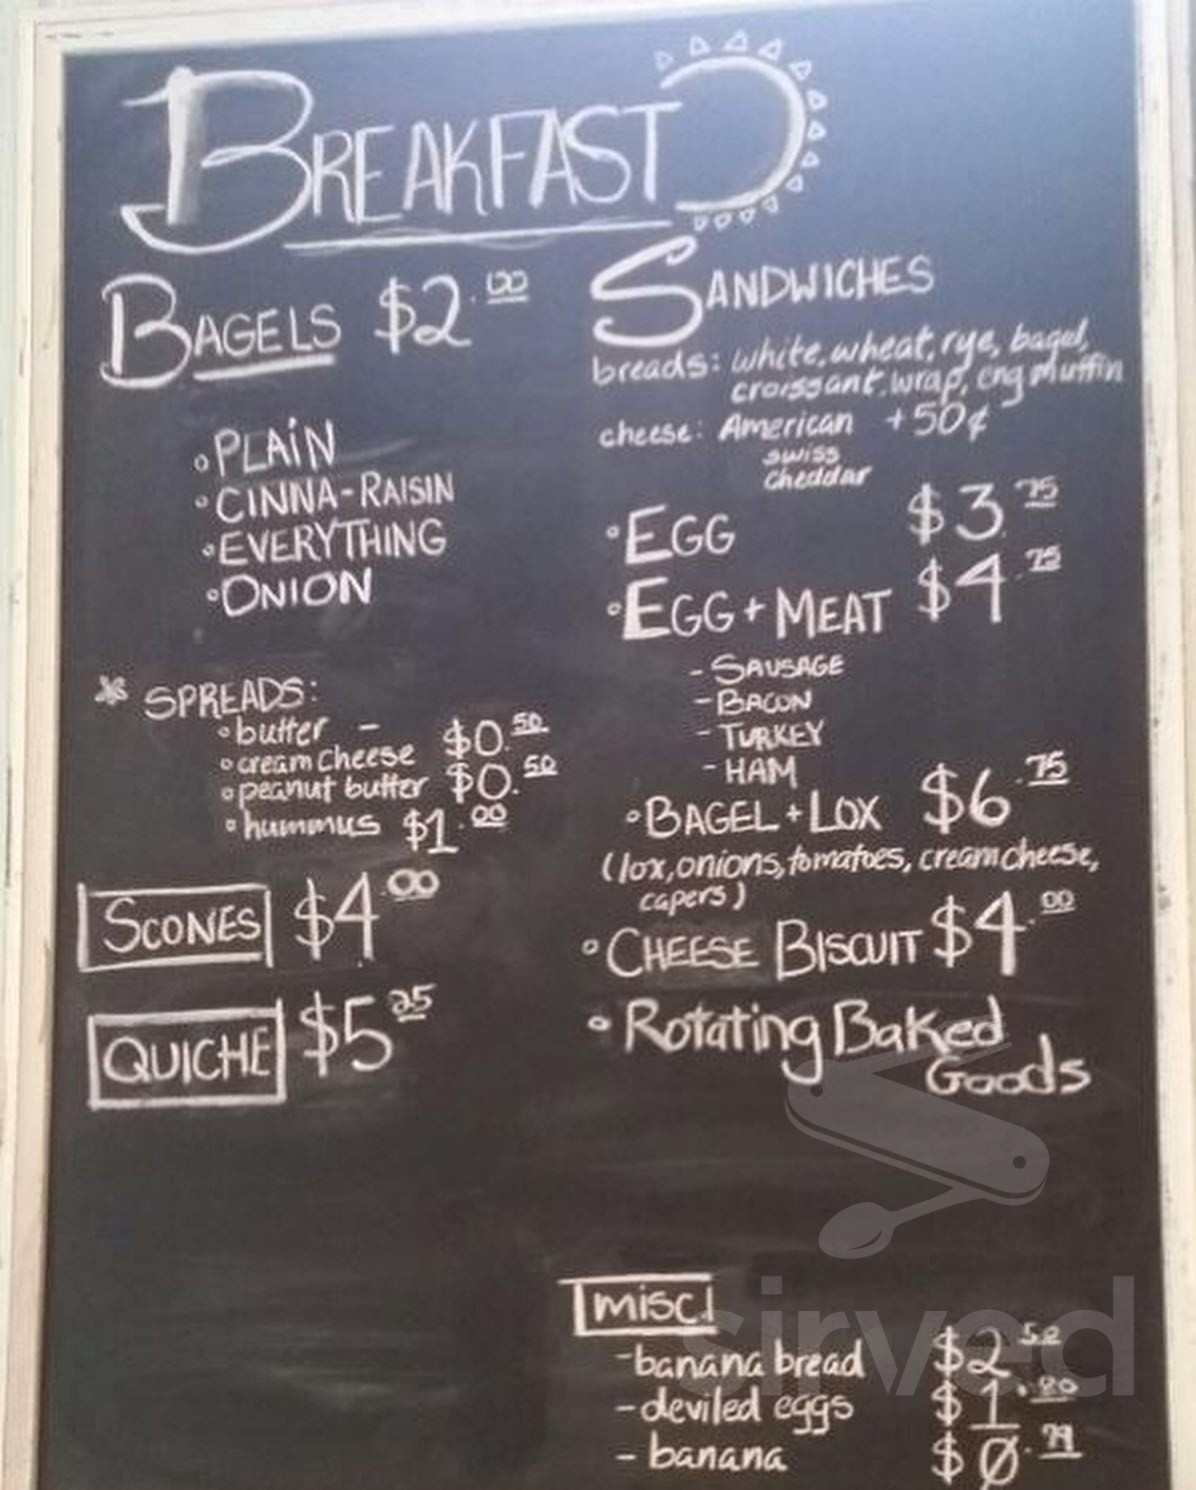 BREAKFAST
BAGELS $2.00
• PLAIN
• CINNA-RAISIN
• EVERYTHING
• ONION
* SPREADS:
• butter -
• cream cheese $0.50
• peanut butter $0.50
• hummus $1.00
SCONES $4.00
QUICHE $5.25
SANDWICHES
breads: white, wheat, rye, bagel,
croissant, wrap, eng muffin
cheese: American +50¢
swiss
cheddar
• EGG $3.75
• EGG + MEAT $4.75
- SAUSAGE
- BACON
- TURKEY
- HAM
• BAGEL + LOX $6.75
(lox, onions, tomatoes, cream cheese,
capers)
• CHEESE BISCUIT $4.00
• Rotating Baked
Goods
misc.
- banana bread $2.50
- deviled eggs $1.80
- banana $0.79
sirved